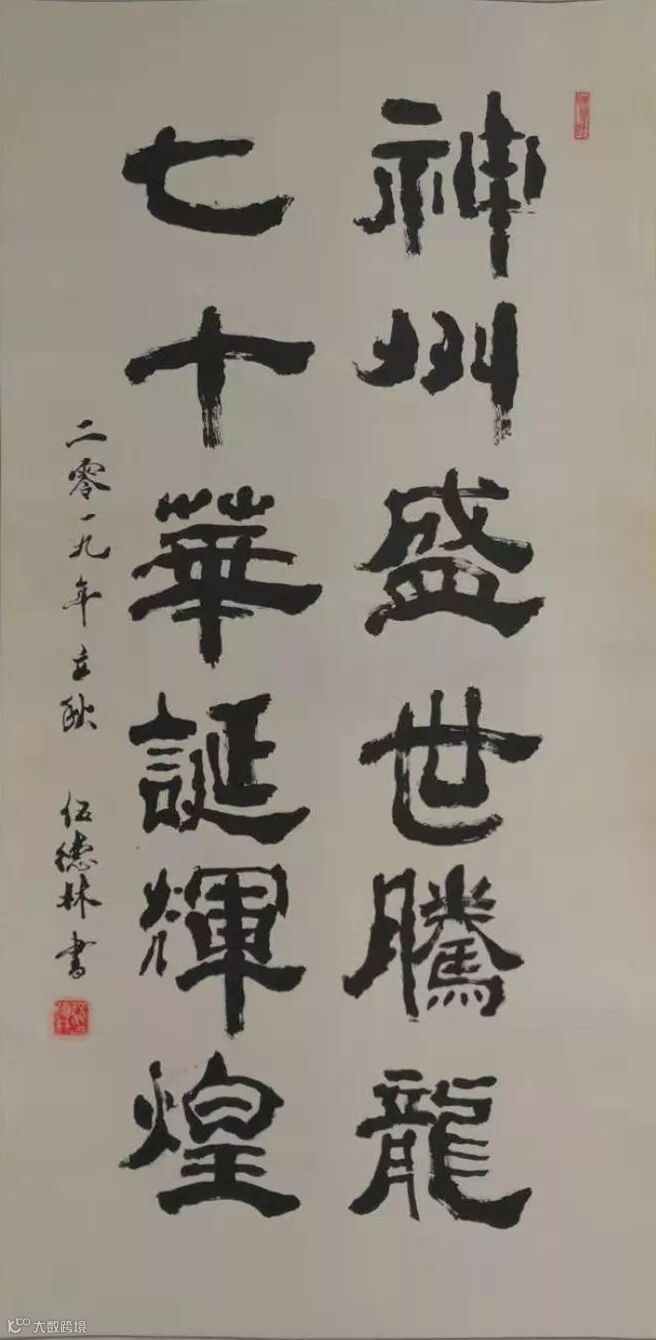 神州盛世騰龍
七十華誕輝煌
二零一九年立秋 伍德林書
大数跨境